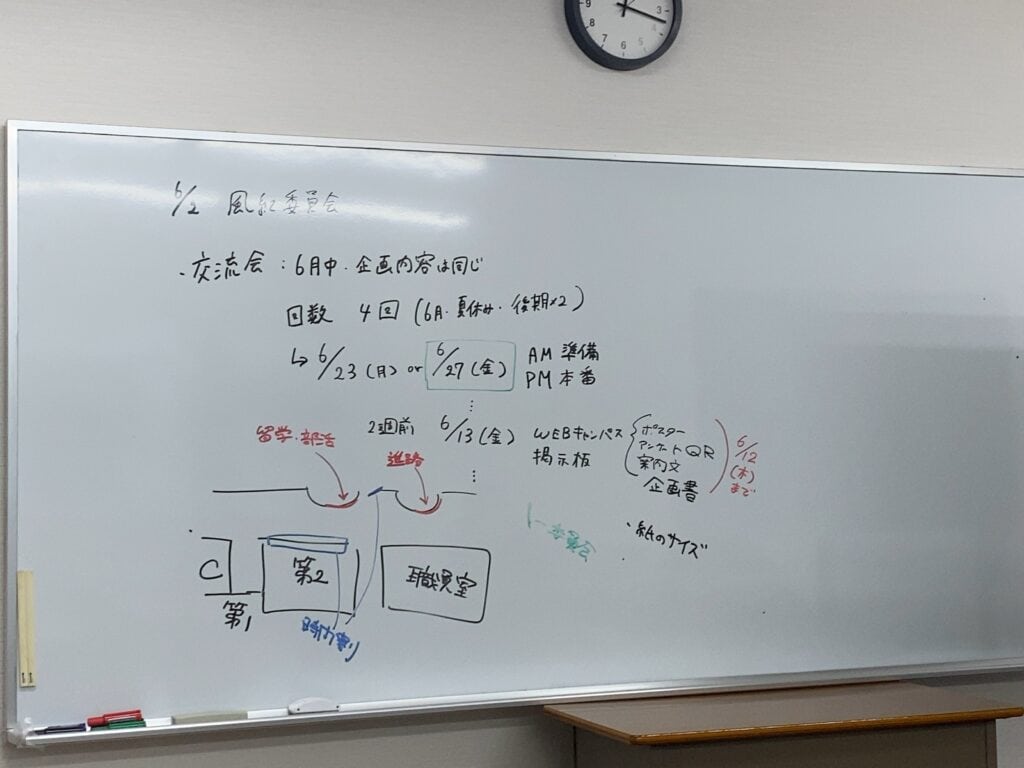 9 3 4 5 6 7 8
6/2 風紀委員会
・交流会：6月中・企画内容は同じ
回数 4回 (6月・夏休み・後期×2)
↳ 6/23(月) or 6/27(金) AM 準備
PM 本番
2週前 6/13(金) WEBキャンパス
掲示板
ポスター
アンケートQR
案内文
企画書
6/12
(木)
まで
留学・部活
進路
・紙のサイズ
委員会
C
第1
第2
職員室
時間割り